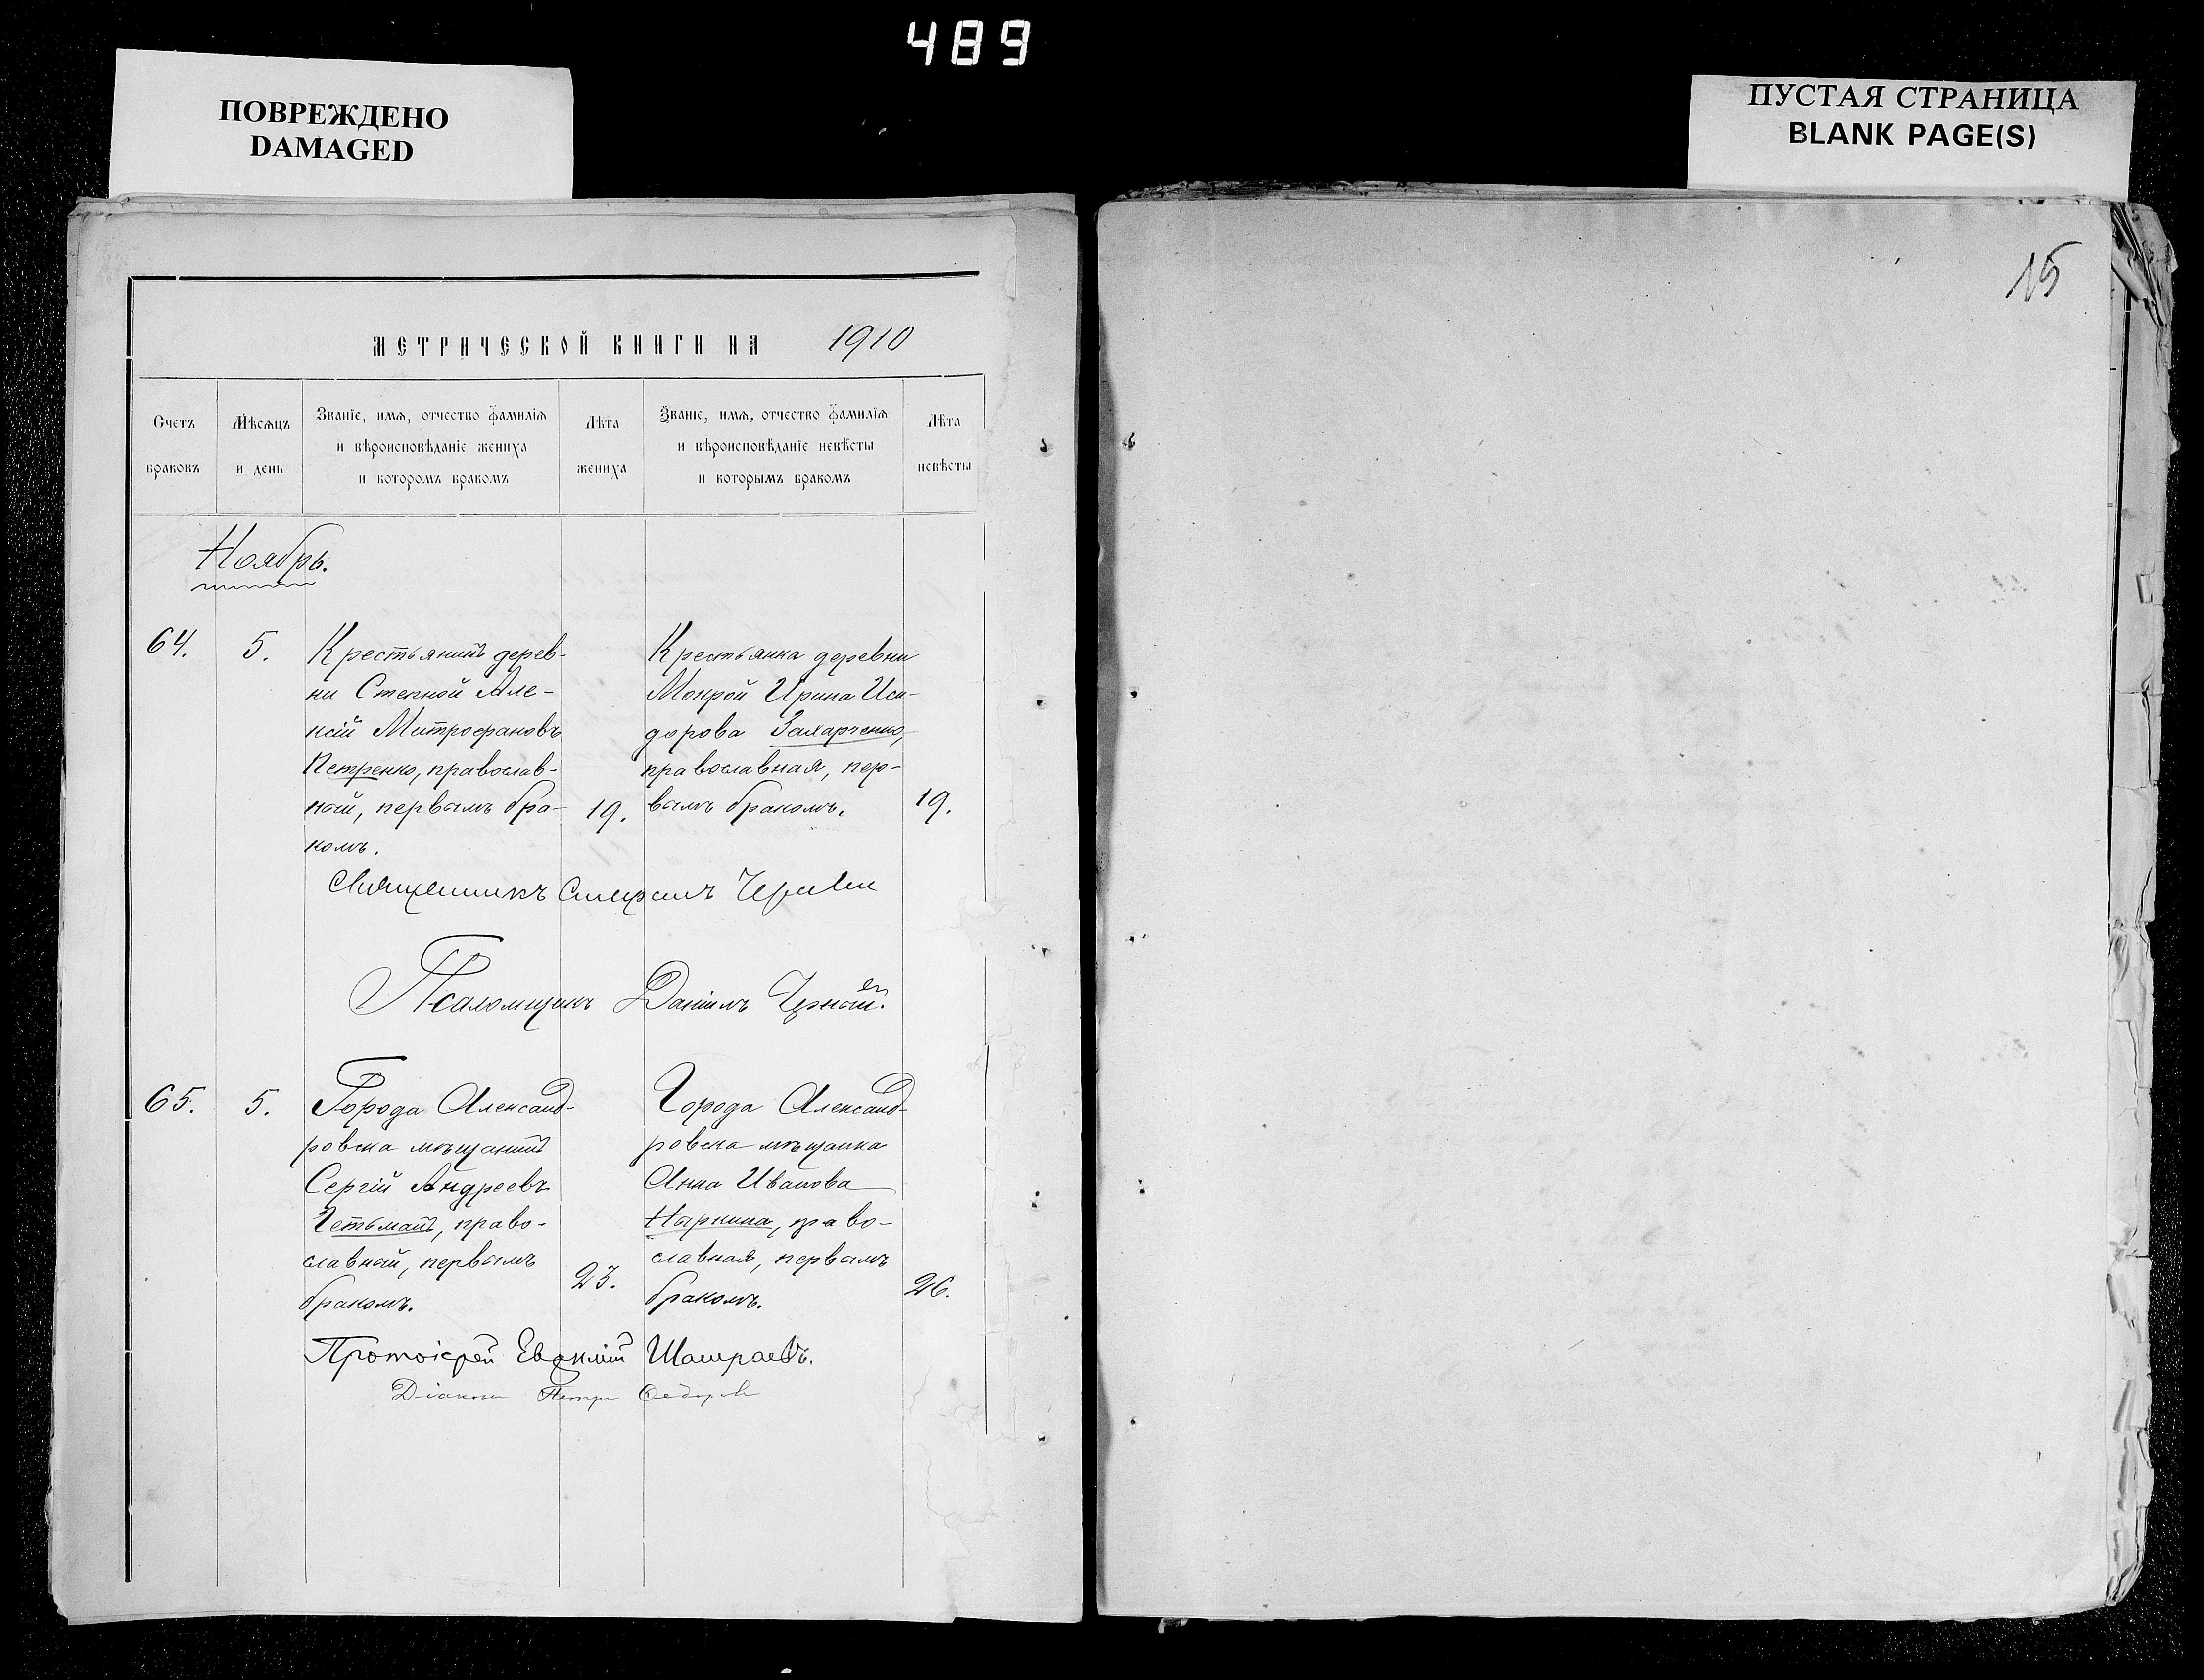 489
ПОВРЕЖДЕНО
DAMAGED
ПУСТАЯ СТРАНИЦА
BLANK PAGE(S)
15
МЕТРИЧЕСКОЙ КНИГИ НА 1910
Счетъ
браковъ
Мѣсяцъ
и день
Званіе, имя, отчество фамилія
и вѣроисповѣданіе жениха
и которомъ бракомъ
Лѣта
жениха
Званіе, имя, отчество фамилія
и вѣроисповѣданіе невѣсты
и которымъ бракомъ
Лѣта
невѣсты
Ноябрь.
64.
5.
Крестьянинъ дерев-
ни Степной Але-
ксій Митрофановъ
Петренко, православ-
ный, первымъ бра-
комъ.
19.
Крестьянка деревни
Мокрой Ирина Иси-
дорова Захарченко,
православная, пер-
вымъ бракомъ.
19.
Священникъ
Псаломщикъ Даніилъ Черный.
65.
5.
Города Александ-
ровска мѣщанинъ
Сергій Андреевъ
Гетьманъ, право-
славный, первымъ
бракомъ.
23.
Города Александ-
ровска мѣщанка
Анна Иванова
Ныркина, право-
славная, первымъ
бракомъ.
26.
Протоіерей
Діаконъ Петръ Федоровъ